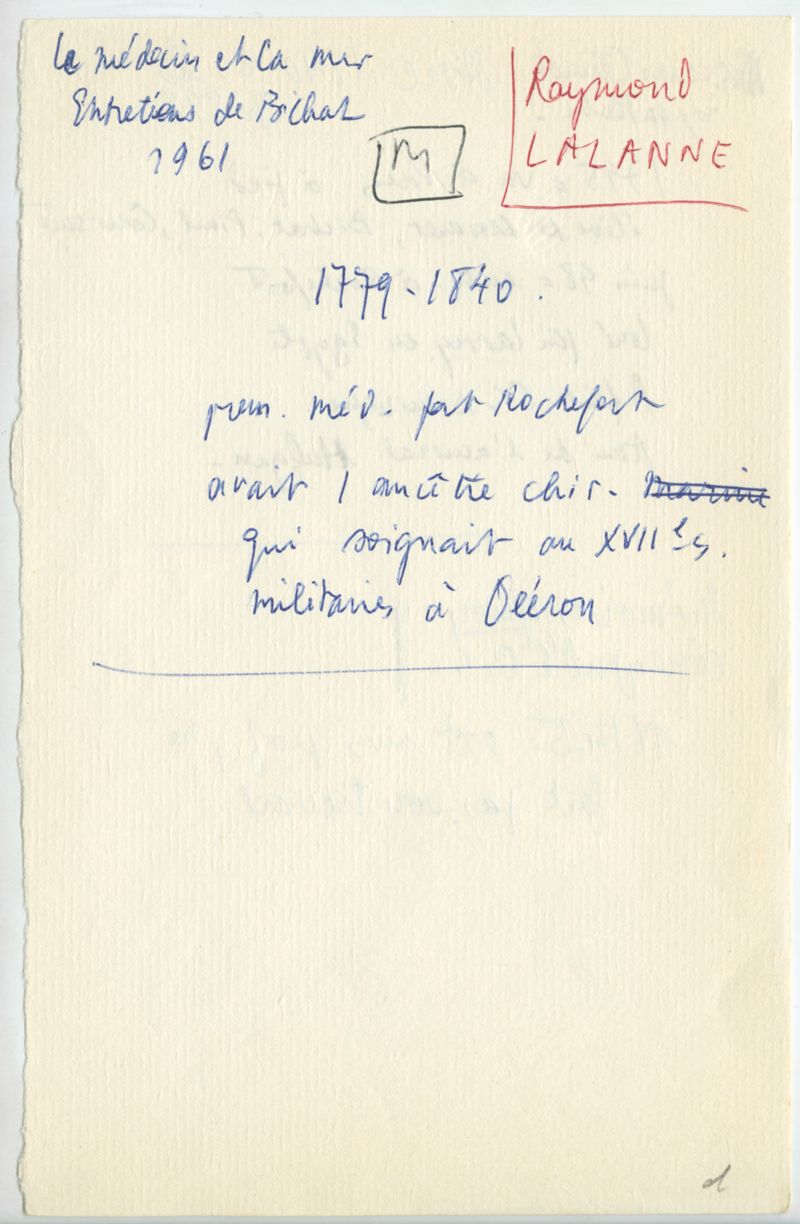 Le médecin et la mer
Entretiens de Bichat
1961
M
Raymond
LALANNE
1779-1840.
prem. méd. port Rochefort
avait 1 ancêtre chir. marine
qui soignait au XVII es.
militaires à Oléron